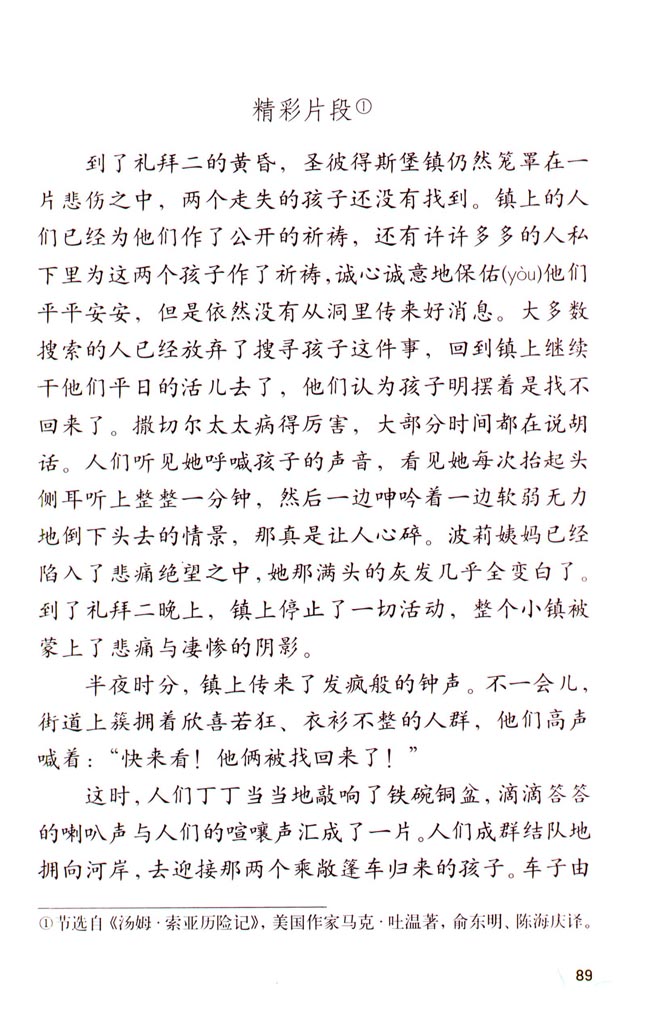 精彩片段①
到了礼拜二的黄昏，圣彼得斯堡镇仍然笼罩在一
片悲伤之中，两个走失的孩子还没有找到。镇上的人
们已经为他们作了公开的祈祷，还有许许多多的人私
下里为这两个孩子作了祈祷，诚心诚意地保佑(yòu)他们
平平安安，但是依然没有从洞里传来好消息。大多数
搜索的人已经放弃了搜寻孩子这件事，回到镇上继续
干他们平日的活儿去了，他们认为孩子明摆着是找不
回来了。撒切尔太太病得厉害，大部分时间都在说胡
话。人们听见她呼喊孩子的声音，看见她每次抬起头
侧耳听上整整一分钟，然后一边呻吟着一边软弱无力
地倒下头去的情景，那真是让人心碎。波莉姨妈已经
陷入了悲痛绝望之中，她那满头的灰发几乎全变白了。
到了礼拜二晚上，镇上停止了一切活动，整个小镇被
蒙上了悲痛与凄惨的阴影。
半夜时分，镇上传来了发疯般的钟声。不一会儿，
街道上簇拥着欣喜若狂、衣衫不整的人群，他们高声
喊着：“快来看！他俩被找回来了！”
这时，人们丁丁当当地敲响了铁碗铜盆，滴滴答答
的喇叭声与人们的喧嚷声汇成了一片。人们成群结队地
拥向河岸，去迎接那两个乘敞篷车归来的孩子。车子由
①节选自《汤姆·索亚历险记》，美国作家马克·吐温著，俞东明、陈海庆译。
89